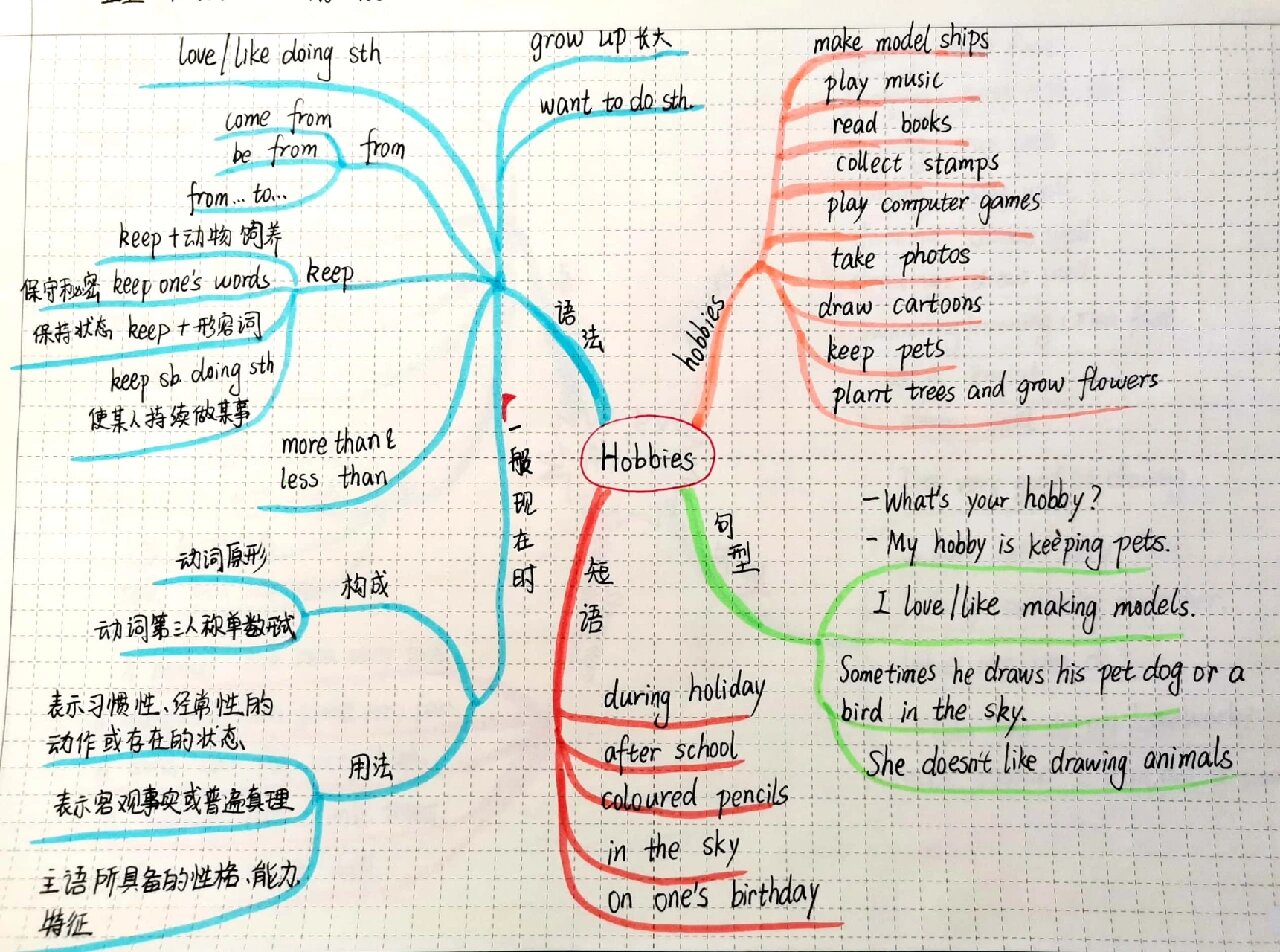 Hobbies
语法
love/like doing sth
grow up 长大
want to do sth.
from
come from
be from
from...to...
keep
keep+动物 饲养
保守秘密 keep one's words
保持状态 keep+形容词
keep sb doing sth
使某人持续做某事
more than &
less than
一般现在时
构成
动词原形
动词第三人称单数形式
用法
表示习惯性、经常性的
动作或存在的状态
表示客观事实或普遍真理
主语所具备的性格、能力、
特征
hobbies
make model ships
play music
read books
collect stamps
play computer games
take photos
draw cartoons
keep pets
plant trees and grow flowers
句型
-What's your hobby?
-My hobby is keeping pets.
I love/like making models.
Sometimes he draws his pet dog or a
bird in the sky.
She doesn't like drawing animals
短语
during holiday
after school
coloured pencils
in the sky
on one's birthday